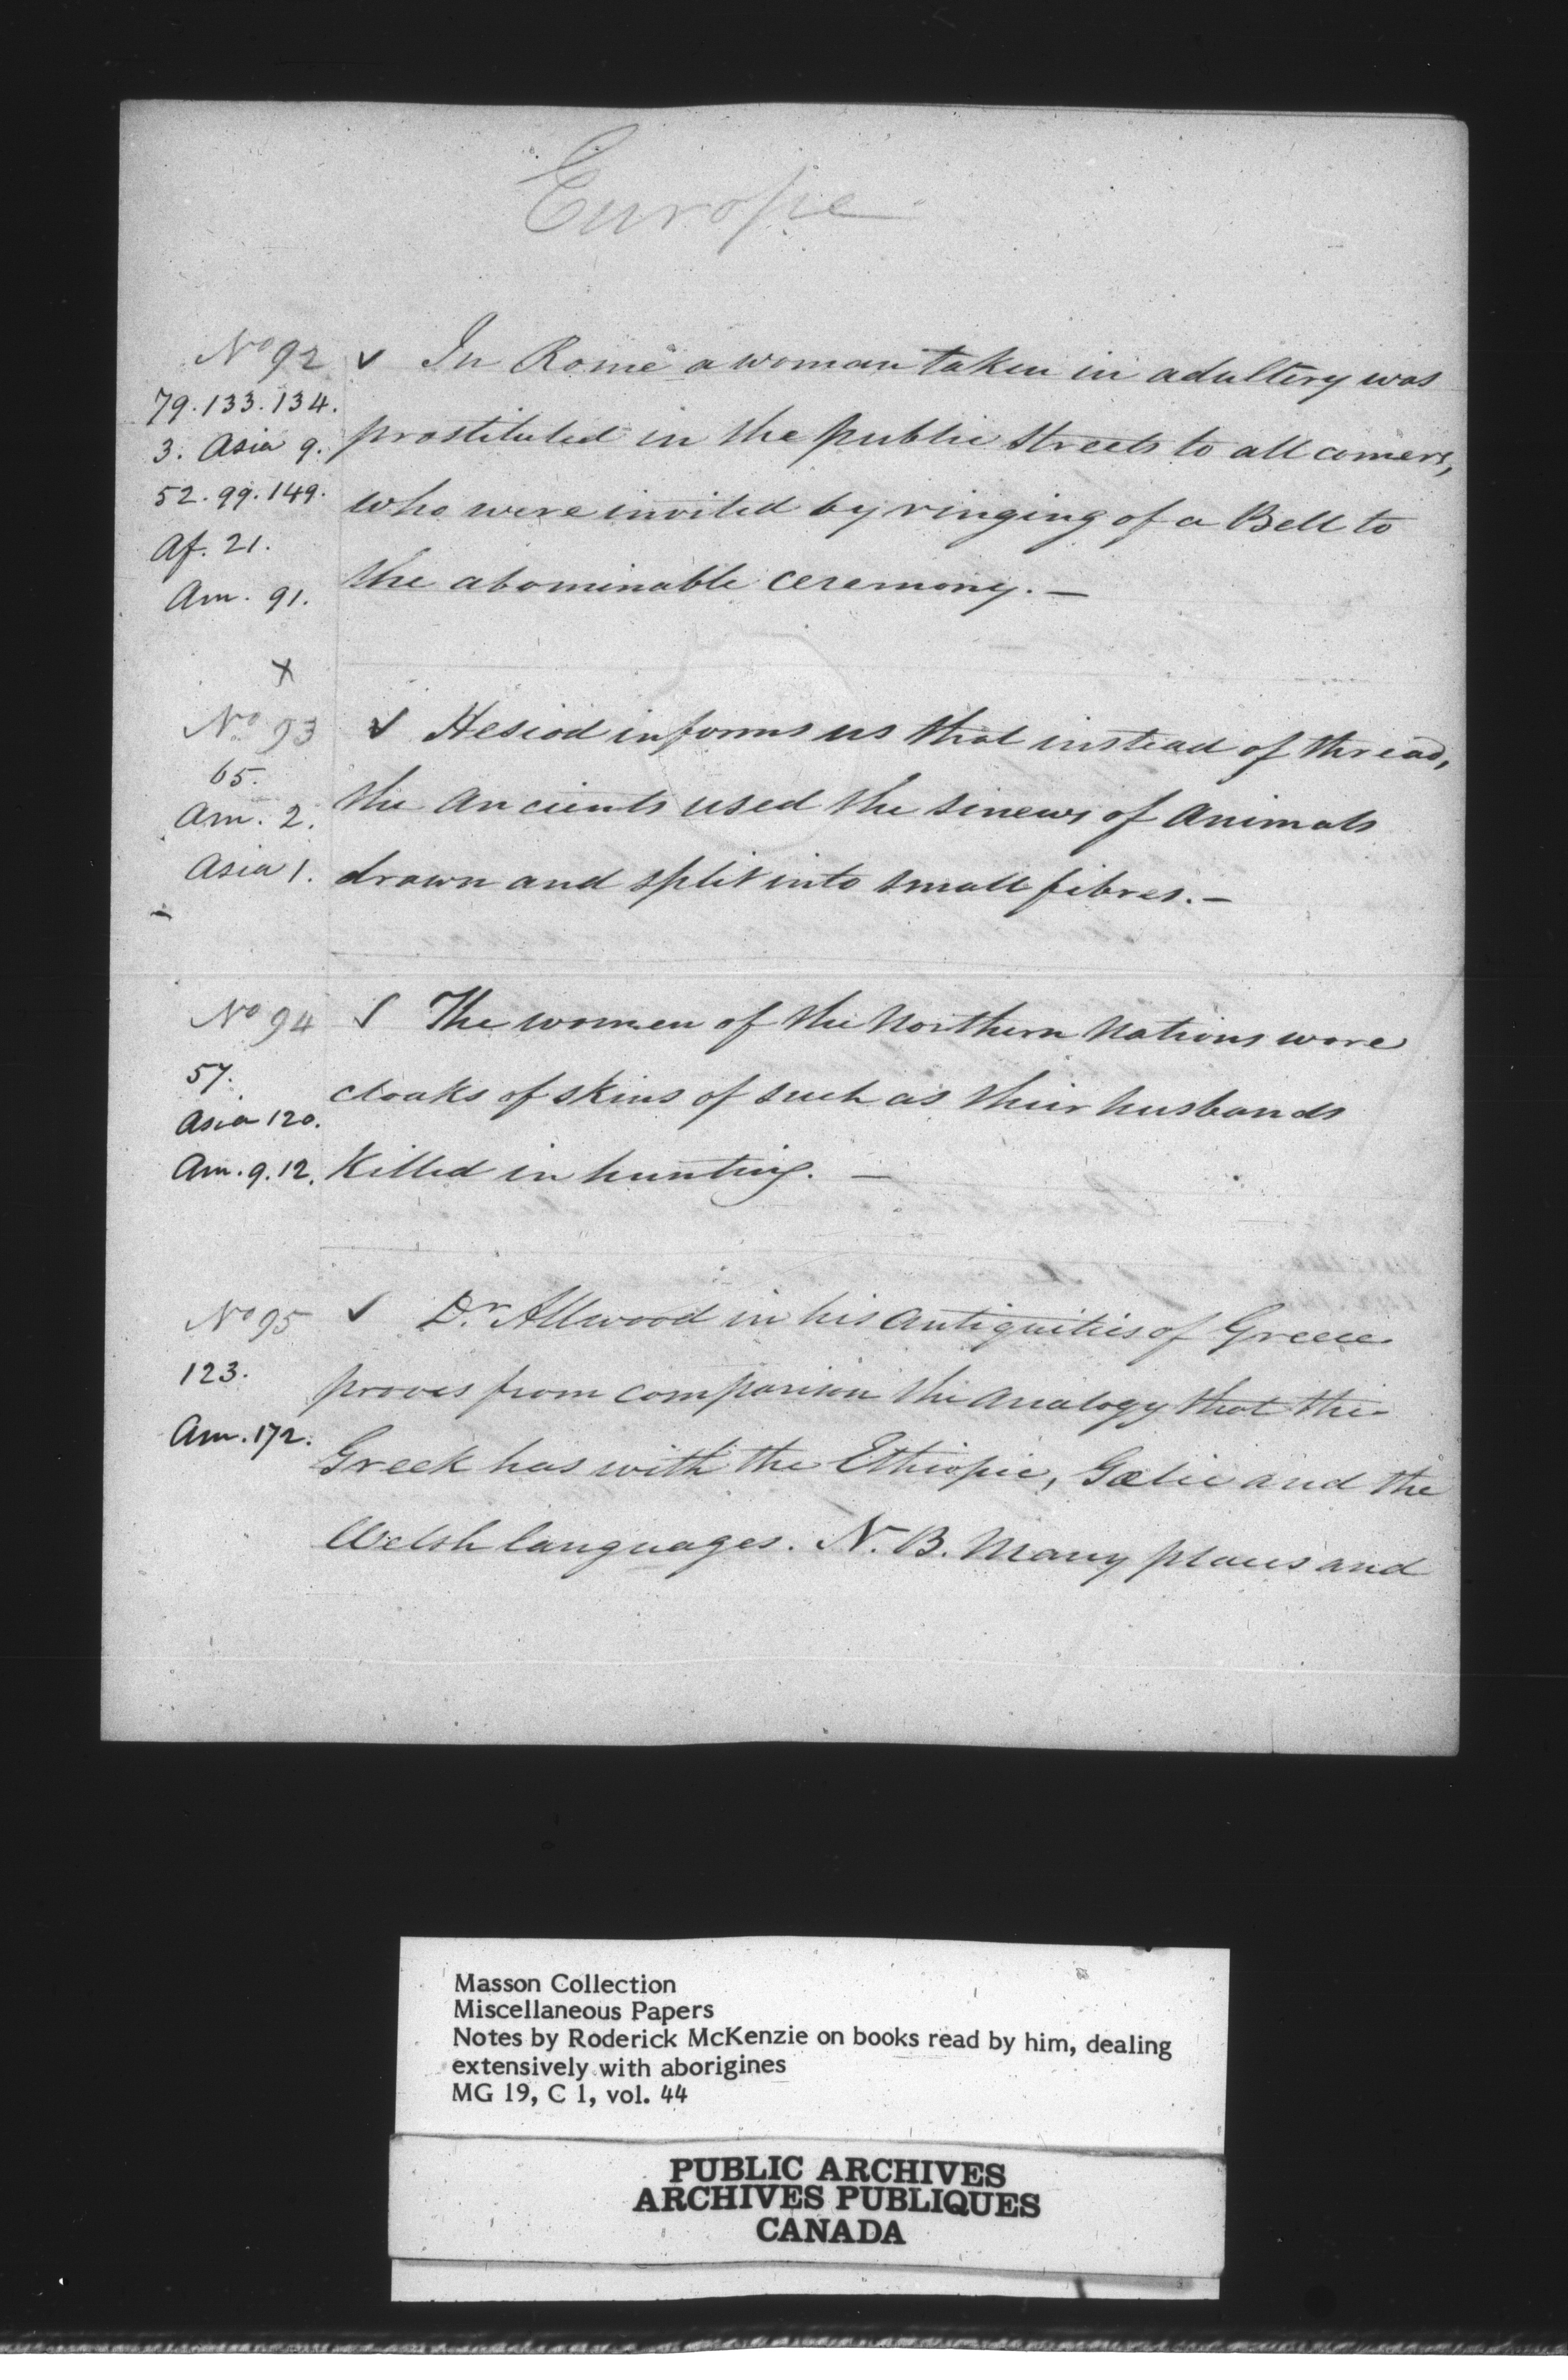 Europe
No 92 ✓ In Rome a woman taken in adultery was
79.133.134.
3. Asia 9. prostituted in the public streets to all comers,
52.99.149. who were invited by ringing of a Bell to
Af. 21.
Am. 91. the abominable ceremony. —
x
No 93 ✓ Hesiod informs us that instead of thread,
65.
Am. 2. the Ancients used the sinews of Animals
Asia 1. drawn and split into small fibres. —
No 94 ✓ The women of the Northern Nations wore
57. cloaks of skins of such as their husbands
Asia 120.
Am. 9.12. Killed in hunting. —
No 95 ✓ Dr. Allwood in his Antiquities of Greece
123. proves from comparison the Analogy that the
Am. 172. Greek has with the Ethiopic, Gælic and the
Welsh languages. N.B. Many places and
Masson Collection
Miscellaneous Papers
Notes by Roderick McKenzie on books read by him, dealing
extensively with aborigines
MG 19, C 1, vol. 44
PUBLIC ARCHIVES
ARCHIVES PUBLIQUES
CANADA